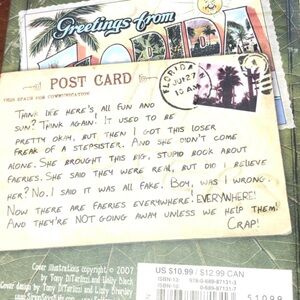 Greetings from
FLORIDA
POST CARD
THIS SPACE FOR COMMUNICATION
FLORIDA
JUL 27
10 AM
THINK LIFE HERE'S ALL FUN AND
SUN? THINK AGAIN! IT USED TO BE
PRETTY OKAY, BUT THEN I GOT THIS LOSER
FREAK OF A STEPSISTER. AND SHE DIDN'T COME
ALONE. SHE BROUGHT THIS BIG, STUPID BOOK ABOUT
FAERIES. SHE SAID THEY WERE REAL, BUT DID I BELIEVE
HER? NO. I SAID IT WAS ALL FAKE. BOY, WAS I WRONG.
NOW THERE ARE FAERIES EVERYWHERE! EVERYWHERE!
AND THEY'RE NOT GOING AWAY UNLESS WE HELP THEM!
CRAP!
Cover illustrations copyright © 2007
by Tony DiTerlizzi and Holly Black
Cover design by Tony DiTerlizzi and Lizzy Bromley
US $10.99 / $12.99 CAN
ISBN-13: 978-0-689-87131-3
ISBN-10: 0-689-87131-
51099